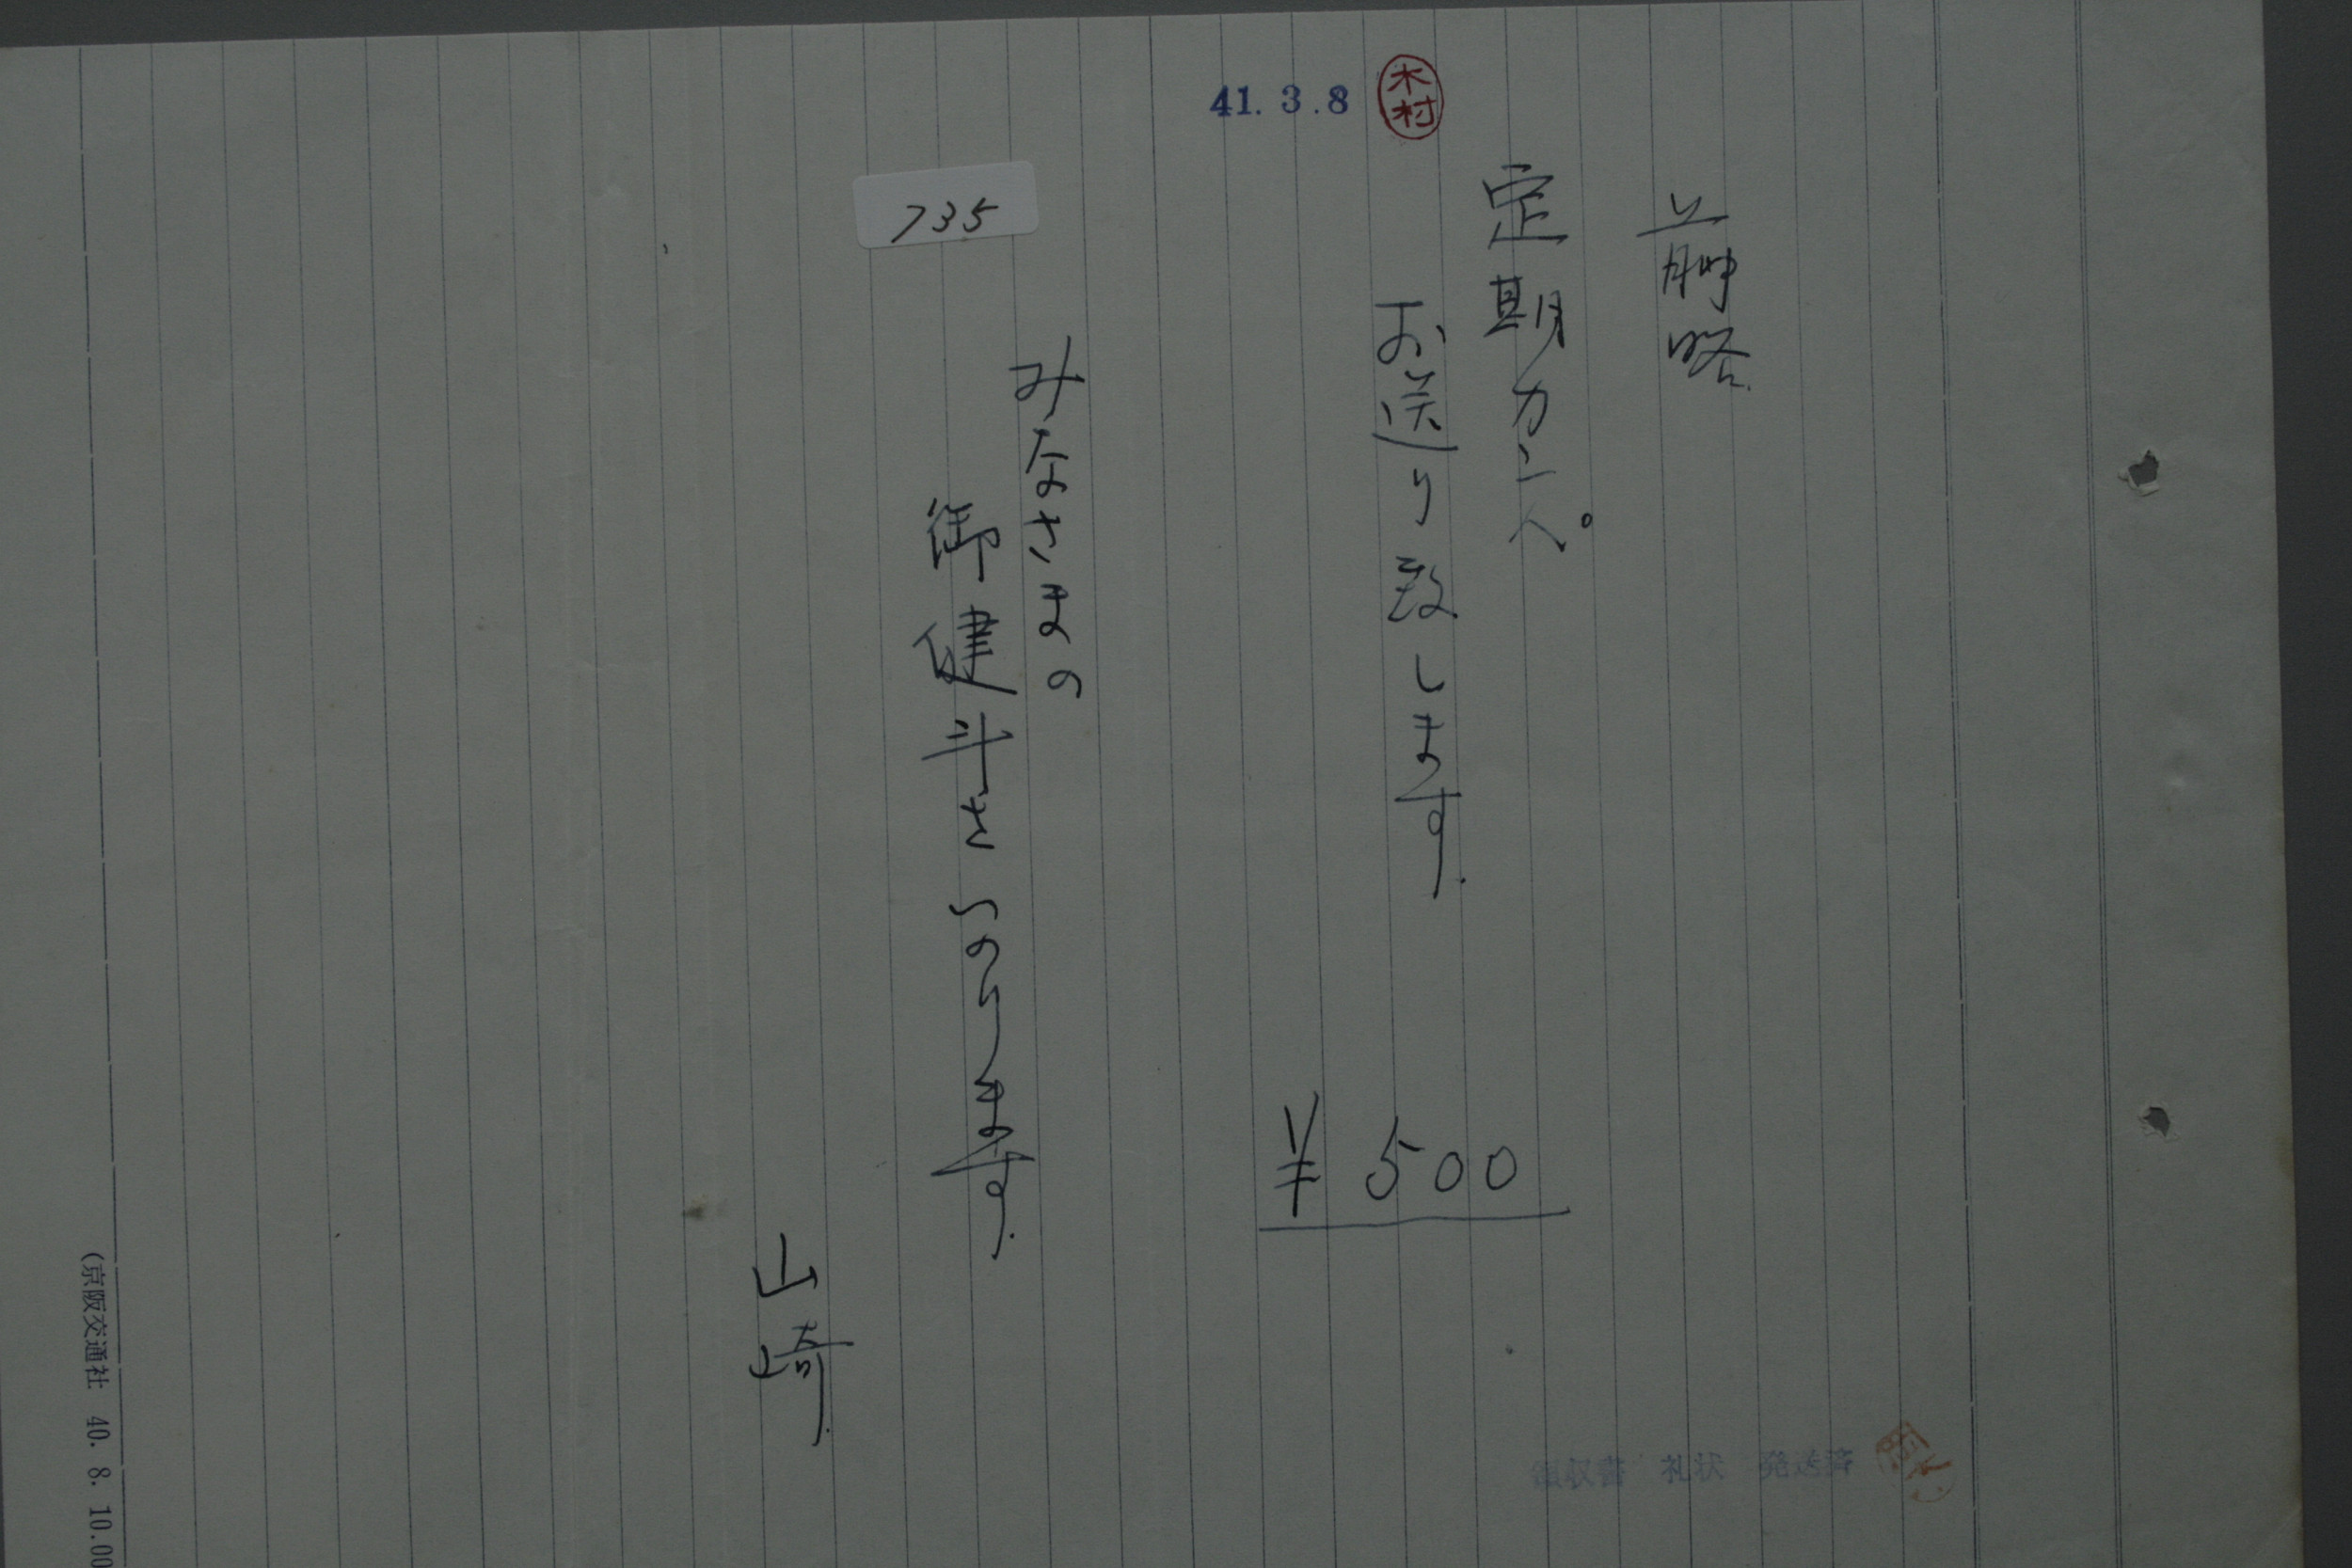 41.3.8
木村
前略
定期カンパ
お送り致します.
¥500
735
みなさまの
御健斗をいのります.
山崎
領収書 礼状 発送済
(京阪交通社 40. 8. 10.00